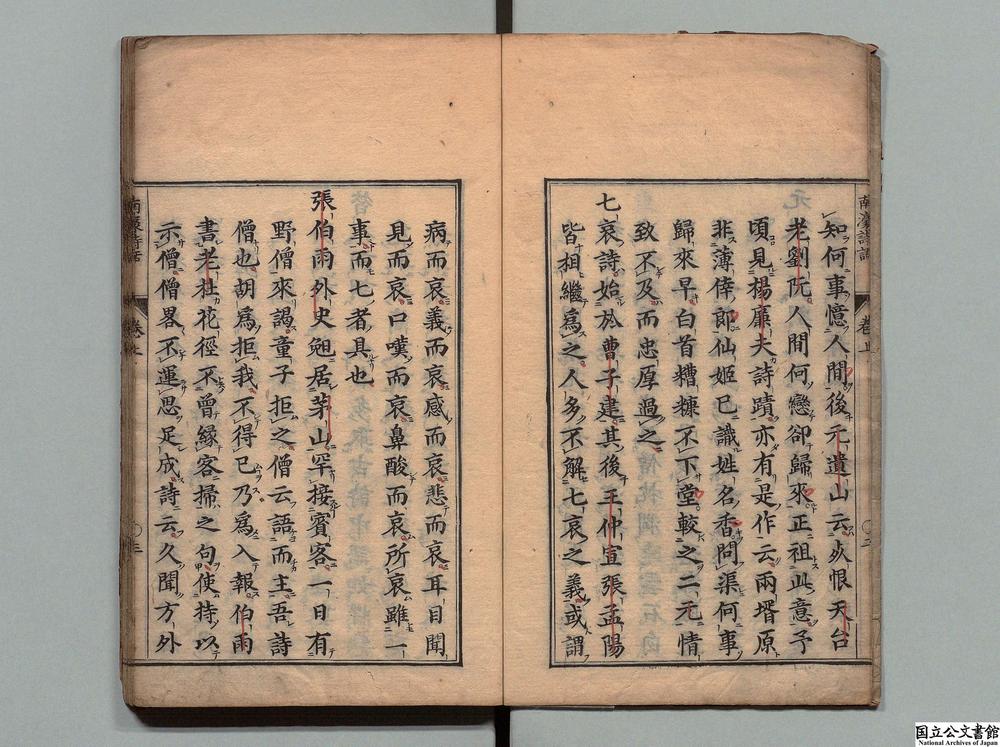 知何事憶人間後元遺山云死恨天台
老劉阮人間何戀卻歸來正祖此意予
頃見楊廉夫詩蹟亦有是作云兩壻原
非薄倖郎仙姬已識姓名香問渠何事
歸來早白首糟糠不下堂較之二元情
致不及而忠厚過之
七哀詩始於曹子建其後王仲宣張孟陽
皆相繼爲之人多不解七哀之義或謂
病而哀義而哀感而哀悲而哀耳目聞
見而哀口嘆而哀鼻酸而哀所哀雖一
事而七者具也
張伯雨外史 居茅山罕接賓客一日有
野僧來謁童子拒之僧云語而主吾詩
僧也胡爲拒我不得已乃爲入報伯雨
書老杜花徑不曾緣客掃之句使持以
示僧僧畧不運思足成詩云久聞方外
南濠詩話
卷上
南濠詩話
国立公文書館
National Archives of Japan